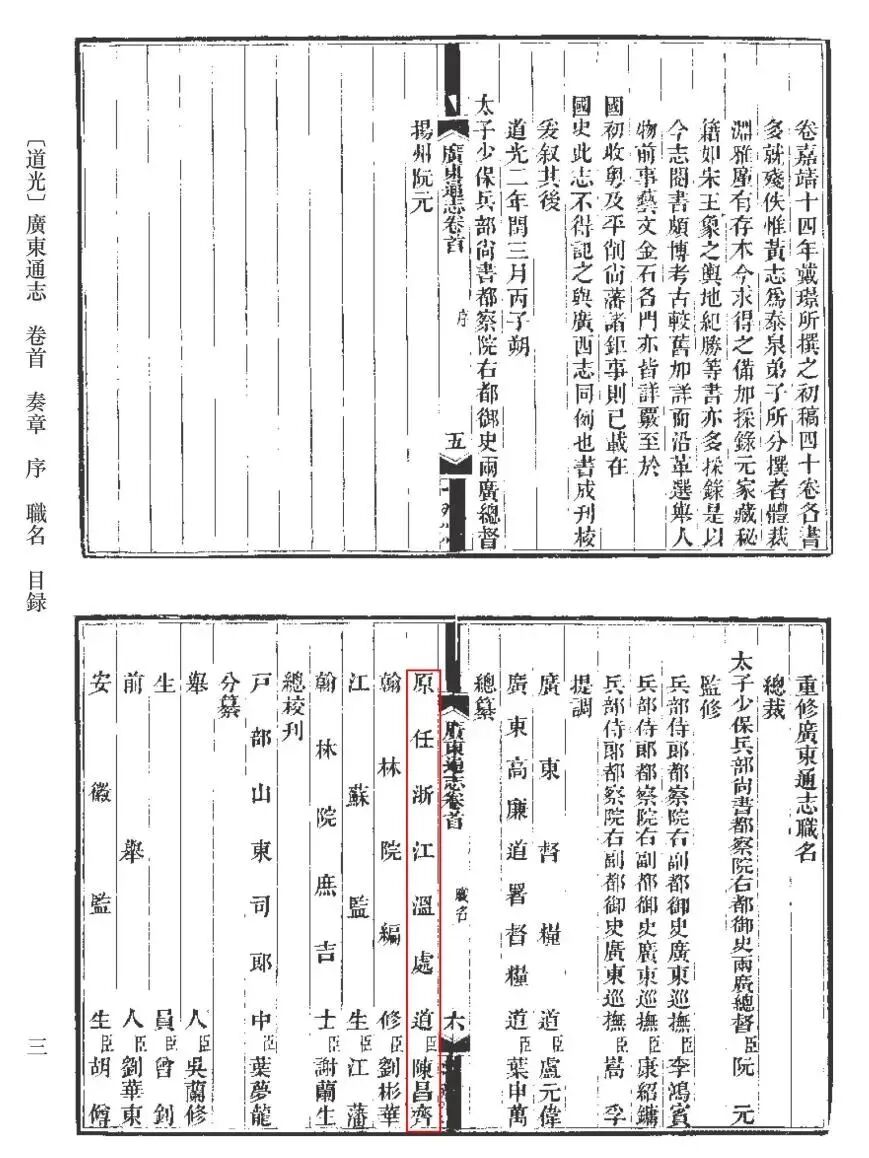 卷嘉靖十四年戴璟所撰之初稿四十卷各書
多就殘佚惟黃志爲泰泉弟子所分撰者體裁
淵雅廑有存本今求得之備加採錄元家藏秘
籍如宋王象之輿地紀勝等書亦多採錄是以
今志閱書頗博考古較舊加詳而沿革選舉人
物前事藝文金石各門亦皆詳覈至於
國初收粵及平削尚藩諸鉅事則已載在
國史此志不得記之與廣西志同例也書成刊校
爰叙其後
道光二年閏三月丙子朔
太子少保兵部尚書都察院右都御史兩廣總督
廣東通志卷首
序
五
揚州阮元
重修廣東通志職名
總裁
太子少保兵部尚書都察院右都御史兩廣總督臣阮元
監修
兵部侍郎都察院右副都御史廣東巡撫臣李鴻賓
兵部侍郎都察院右副都御史廣東巡撫臣康紹鏞
兵部侍郎都察院右副都御史廣東巡撫臣嵩孚
提調
廣東督糧道臣盧元偉
廣東高廉道署督糧道臣葉申萬
總纂
廣東通志卷首
職名
六
原任浙江溫處道臣陳昌齊
翰林院編修臣劉彬華
江蘇監生臣江藩
翰林院庶吉士臣謝蘭生
總校刊
戶部山東司郎中臣葉夢龍
分纂
舉人臣吳蘭修
生員臣曾釗
前舉人臣劉華東
安徽監生臣胡
〔道光〕廣東通志 卷首 奏章 序 職名 目録
三